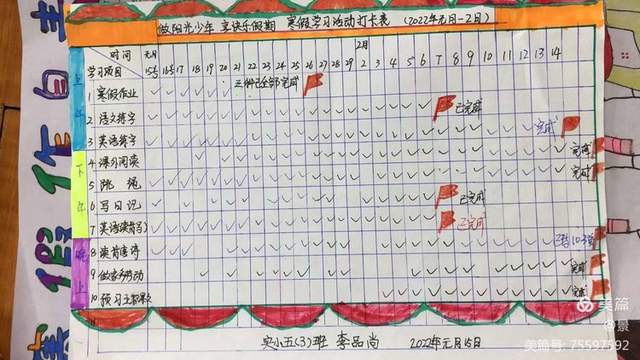 做阳光少年 享快乐假期 寒假学习活动打卡表 (2022年元月-2月)
时间 元月 2月
学习项目 15号 16号 17 18 19 20 21 22 23 24 25 26 27 28 29 2 3 4 5 6 7 8 9 10 11 12 13 14
上午
1 寒假作业 完成
2 语文练字 已完成
3 英语练字 完成
下午
4 课外阅读 完成
5 跳绳 完成
6 写日记 已完成
7 英语读背 已完成
晚上
8 读背唐诗
9 做家务劳动 完成
10 预习 完成
五(3)班 李品尚 2022年元月15日
美篇
美篇号: 75597592